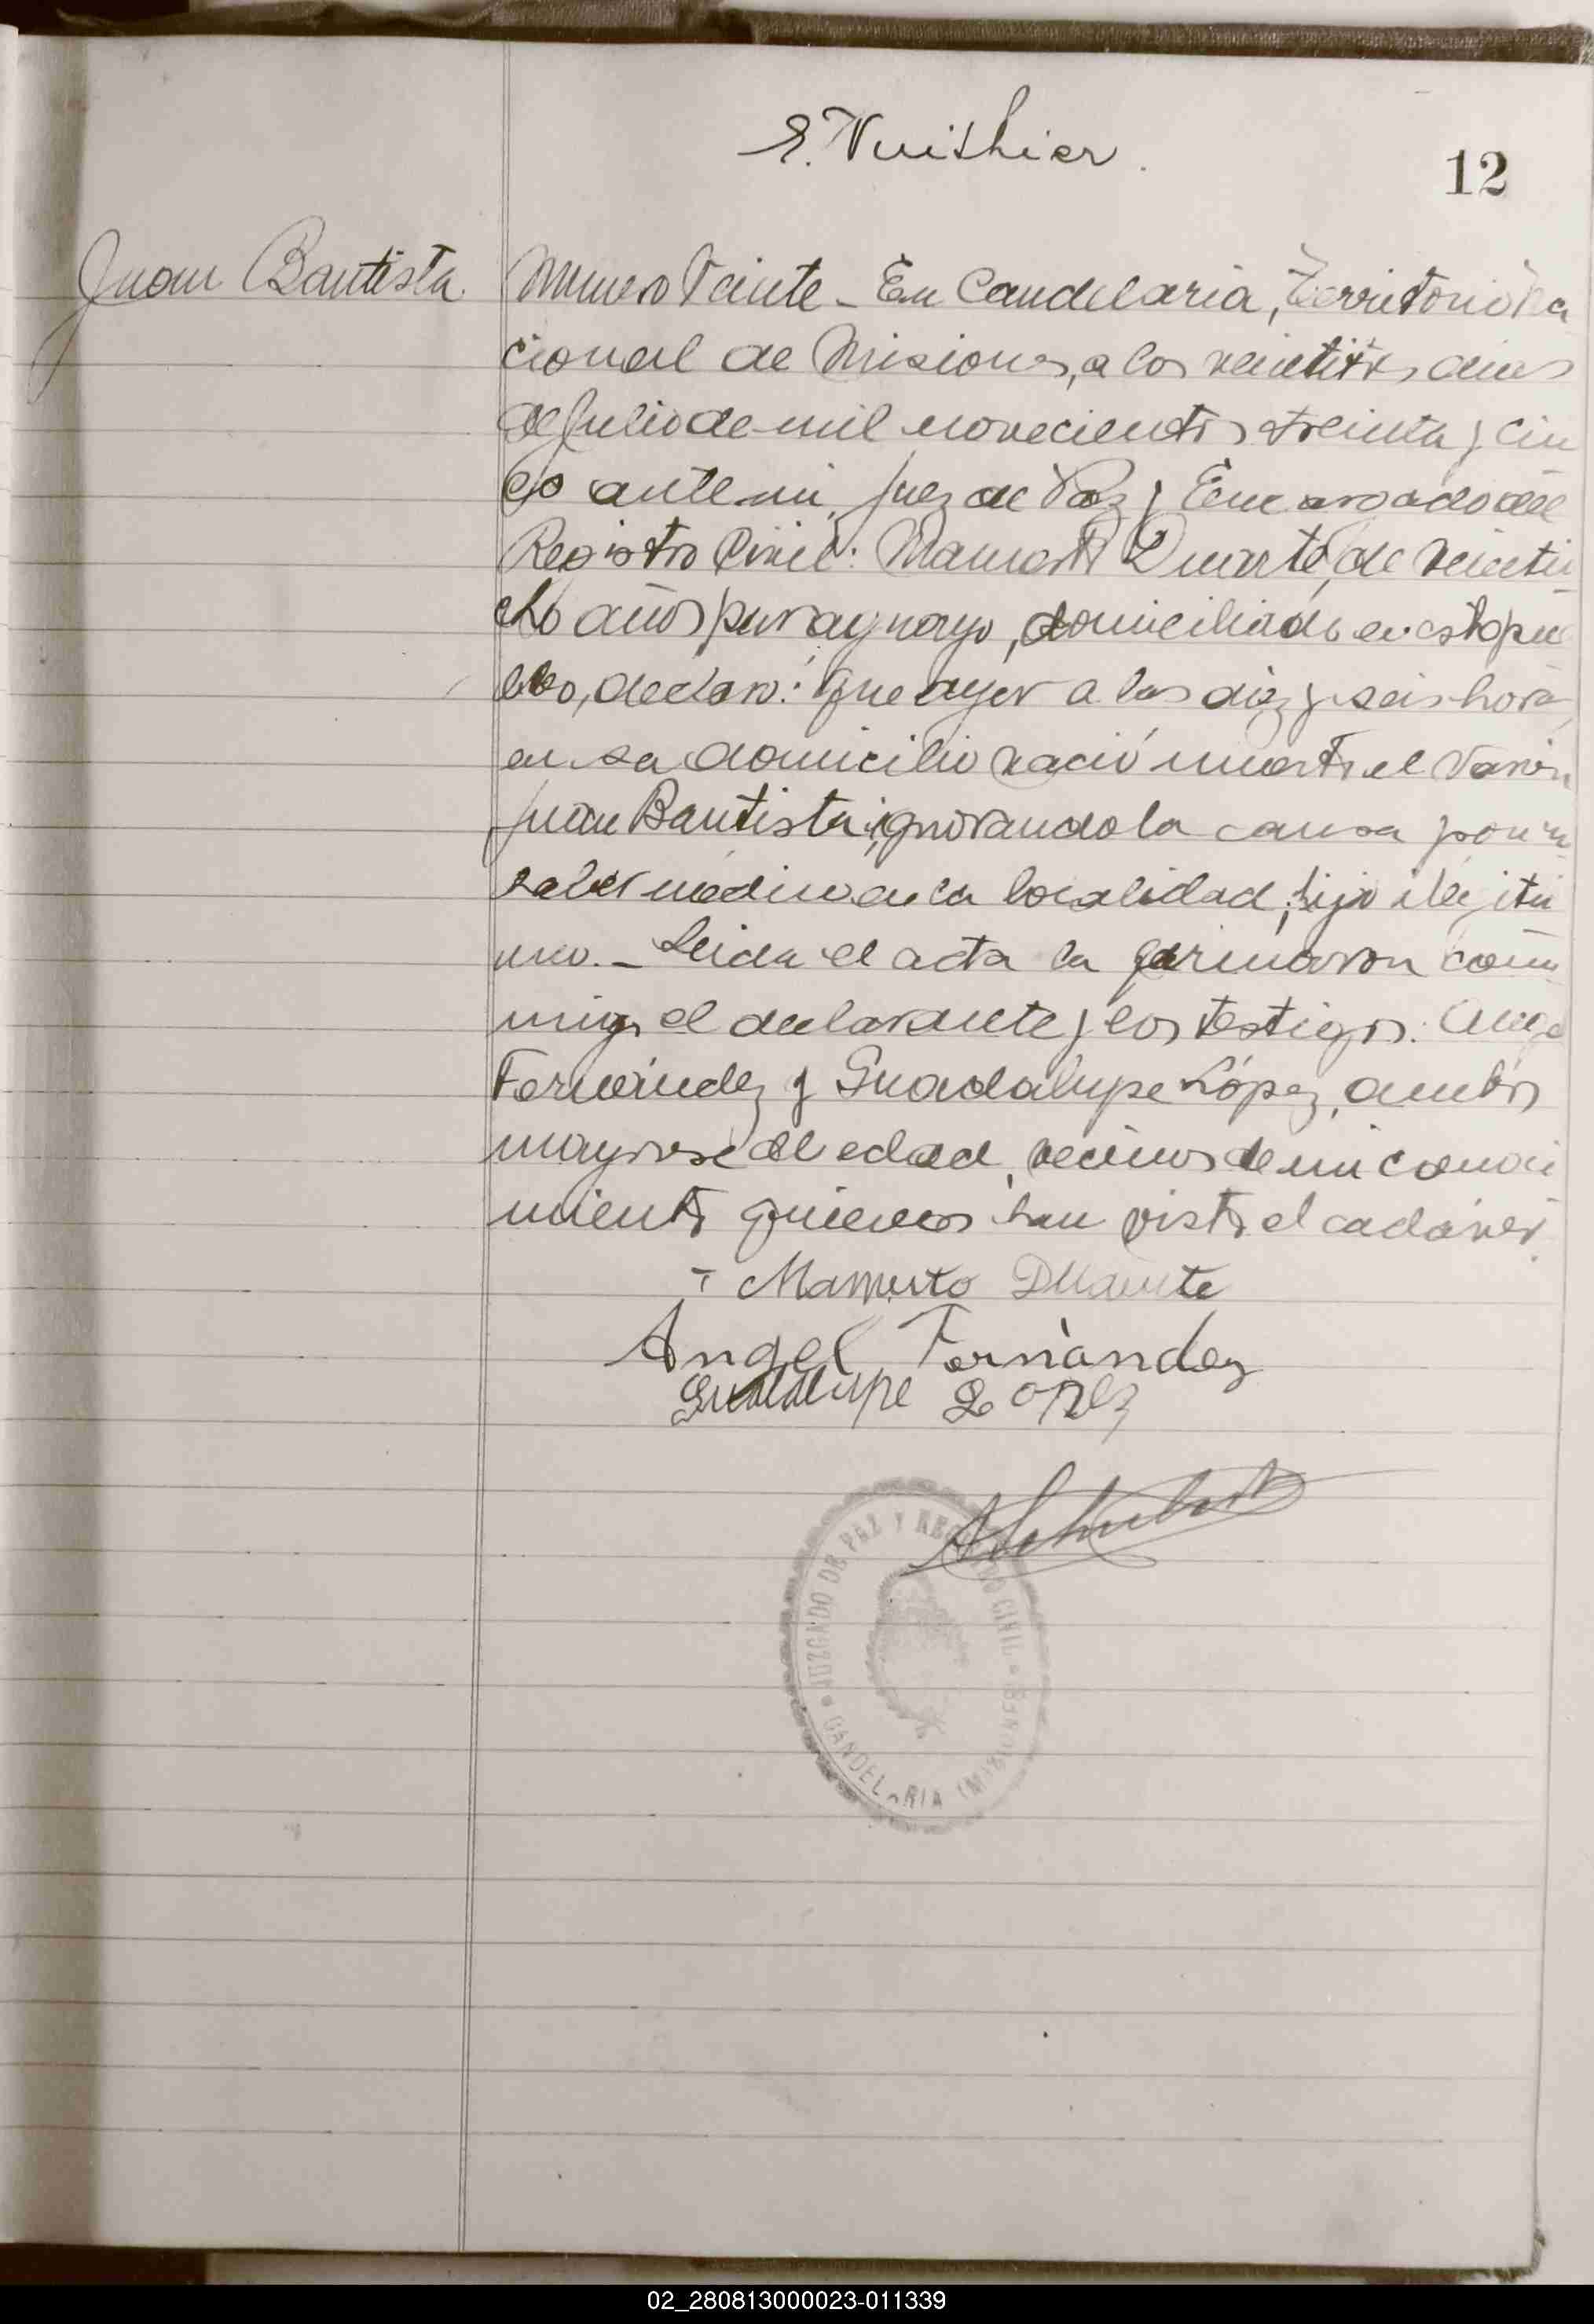 E. Vuithier.
12
Juan Bautista
Numero Veinte - En Candelaria, Territorio Na
cional de Misiones, a los veintitres dias
de Julio de mil novecientos treinta y cin
co ante mi, Juez de Paz y Encargado del
Registro Civil: Mamerto Duarte, de veintio
cho años, paraguayo, domiciliado en esta pue
blo, declaro: Que ayer a las diez y seis horas,
en su domicilio nació muerto el varón
Juan Bautista, ignorando la causa por no
haber médico en la localidad; hijo ilegiti
mo. - Leida el acta la firmaron con
migo el declarante y los testigos: Angel
Fernández y Guadalupe López, ambos
mayores de edad, vecinos de mi conoci
miento quienes han visto el cadáver.
Mamerto Duarte
Angel Fernàndez
Guadalupe Lopez
JUZGADO DE PAZ Y REGISTRO CIVIL
CANDELARIA (MISIONES)
02_280813000023-011339